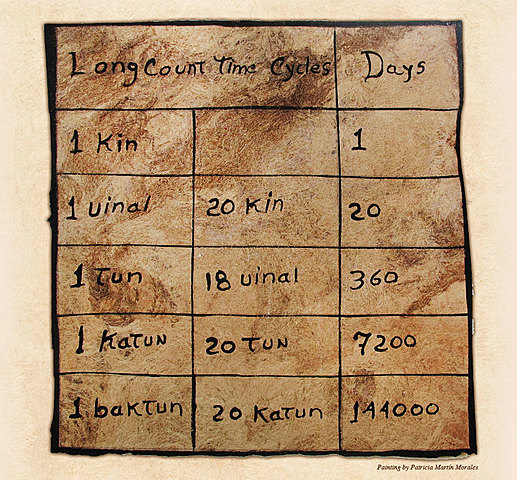 Long Count Time Cycles Days
1 Kin 1
1 uinal 20 Kin 20
1 Tun 18 uinal 360
1 KaTUN 20 TUN 7200
1 bakTun 20 KaTun 144000
Painting by Patricia Martín Morales